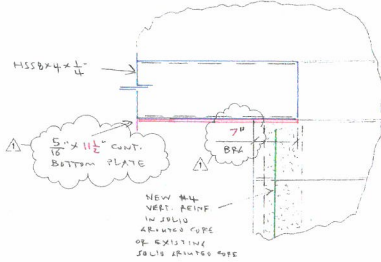 HSS8x4x1/4"
5/16" x 11 1/2" CONT.
BOTTOM PLATE
1
7"
BRG
1
NEW #4
VERT. REINF
IN SOLID
GROUTED CORE
OR EXISTING
SOLID GROUTED CORE